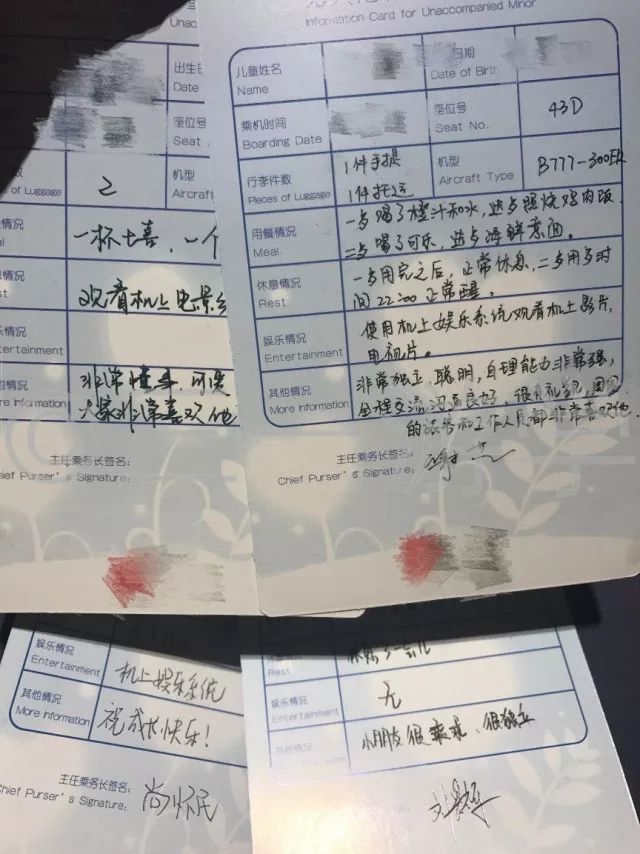 Information Card for Unaccompanied Minor
儿童姓名
Name
日期
Date of Birth
乘机时间
Boarding Date
座位号
Seat No.
43D
行李件数
Pieces of Luggage
1件手提
1件托运
机型
Aircraft Type
B777-300ER
用餐情况
Meal
一步喝了橙汁和水,进步照烧鸡肉饭
二步喝了可乐,进步海鲜意面。
休息情况
Rest
一步用完之后,正常休息,二步用步时
间22:00正常醒。
娱乐情况
Entertainment
使用机上娱乐系统观看机上影片,
电视片。
其他情况
More Information
非常独立、聪明,自理能力非常强,
全程交流沟通良好,很有礼貌,周围
的旅客和工作人员都非常喜欢他
主任乘务长签名:
Chief Purser's Signature:
Unacc
出生日
Date
座位号
Seat
of Luggage
2
机型
Aircraft
情况
al
一杯七喜,一个
息情况
st
观看机上电影
乐情况
tertainment
其他情况
More Information
非常懂事、可爱
大家非常喜欢他
主任乘务长签名:
Chief Purser's Signature:
娱乐情况
Entertainment
机上娱乐系统
其他情况
More Information
祝成长快乐!
主任乘务长签名:
Chief Purser's Signature:
尚怀民
Rest
一会儿
娱乐情况
Entertainment
无
其他情况
More Information
小朋友很乖、很独立